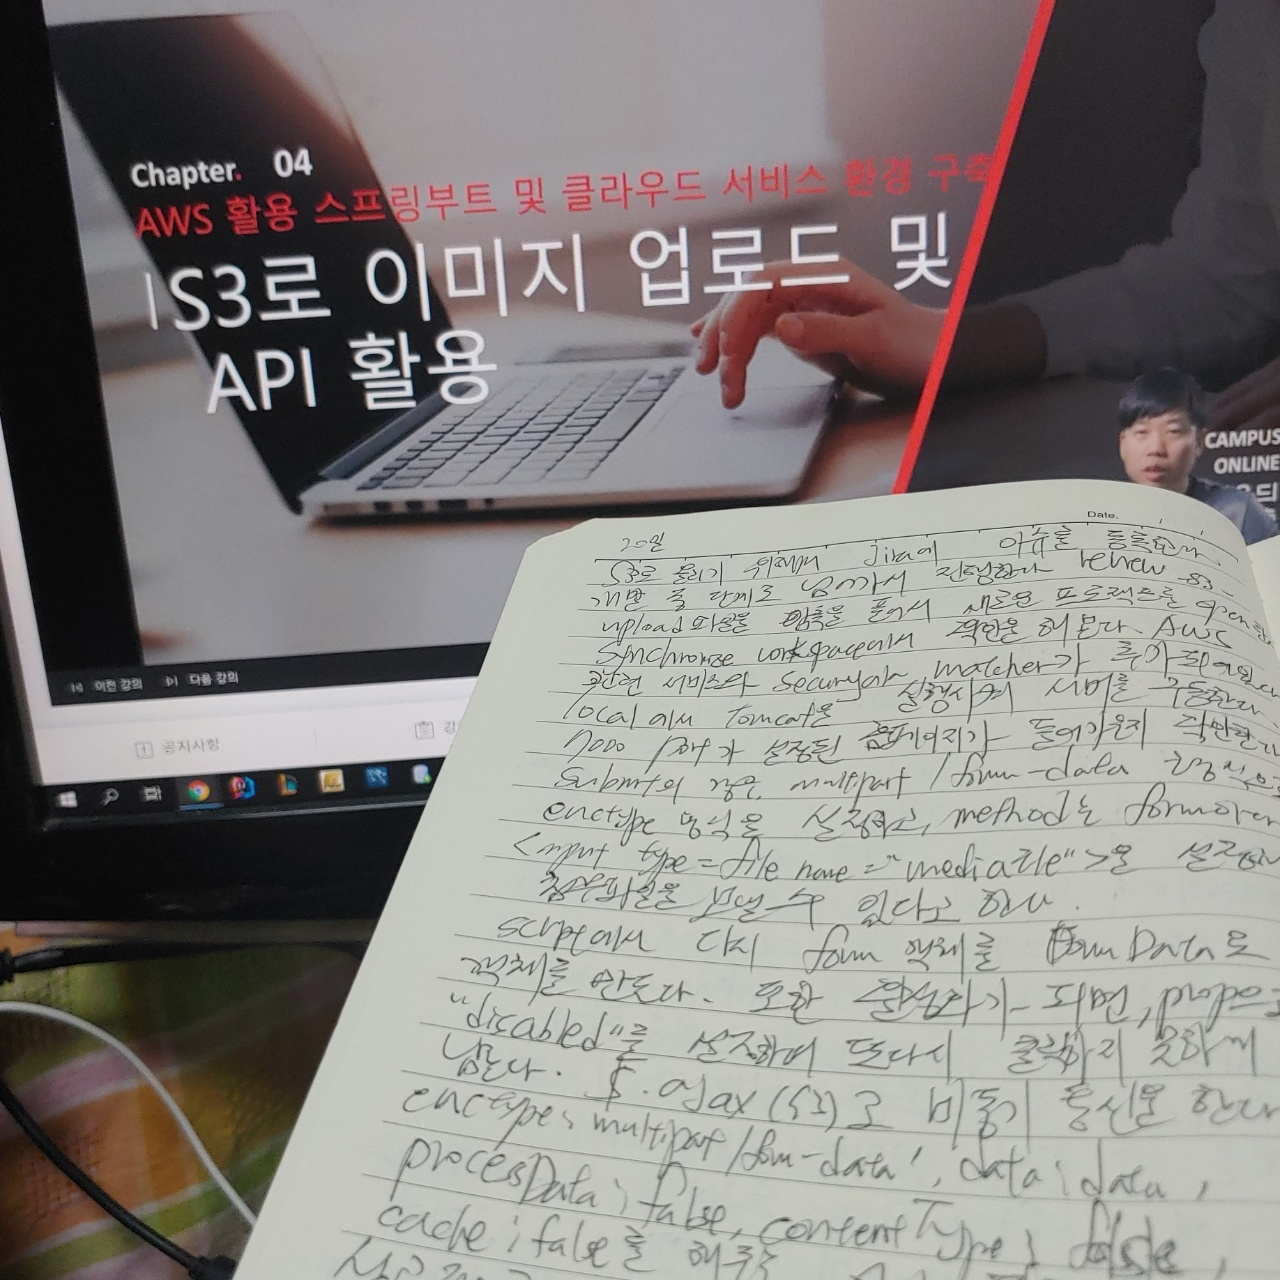 Chapter. 04
AWS 활용 스프링부트 및 클라우드 서비스 환경 구축
S3로 이미지 업로드 및
API 활용
CAMPUS
ONLINE
이전 강의 다음 강의
공지사항
Date.
20일
S3로 올리기 위해서 Jira에 이슈를 등록한다.
개발 중 단계로 넘어가서 진행한다. renew-S3-
upload 파일을 압축을 풀어서 새로운 프로젝트를 open
Synchronize workspace에서 확인을 해본다. AWS
관련 서비스와 Security에 matcher가 추가되어있다
local에서 tomcat을 실행시켜 서버를 구동한다.
port가 설정된 홈페이지가 들어가는지 확인한다
Submit의 경우 multipart/form-data 형식으로
enctype 방식을 설정하고, method는 form이며
<input type=file name="mediaFile">을 설정하여
첨부파일을 보낼 수 있다고 한다.
script에서 다시 form 객체를 FormData로
객체를 만든다. 또한 활성화가 되면, prop으로
"disabled"를 설정하여 또다시 클릭하지 못하게
남긴다. $.ajax({})로 비동기 통신을 한다
enctype: multipart/form-data', data: data,
processData: false, contentType: false,
cache: false를 해주고